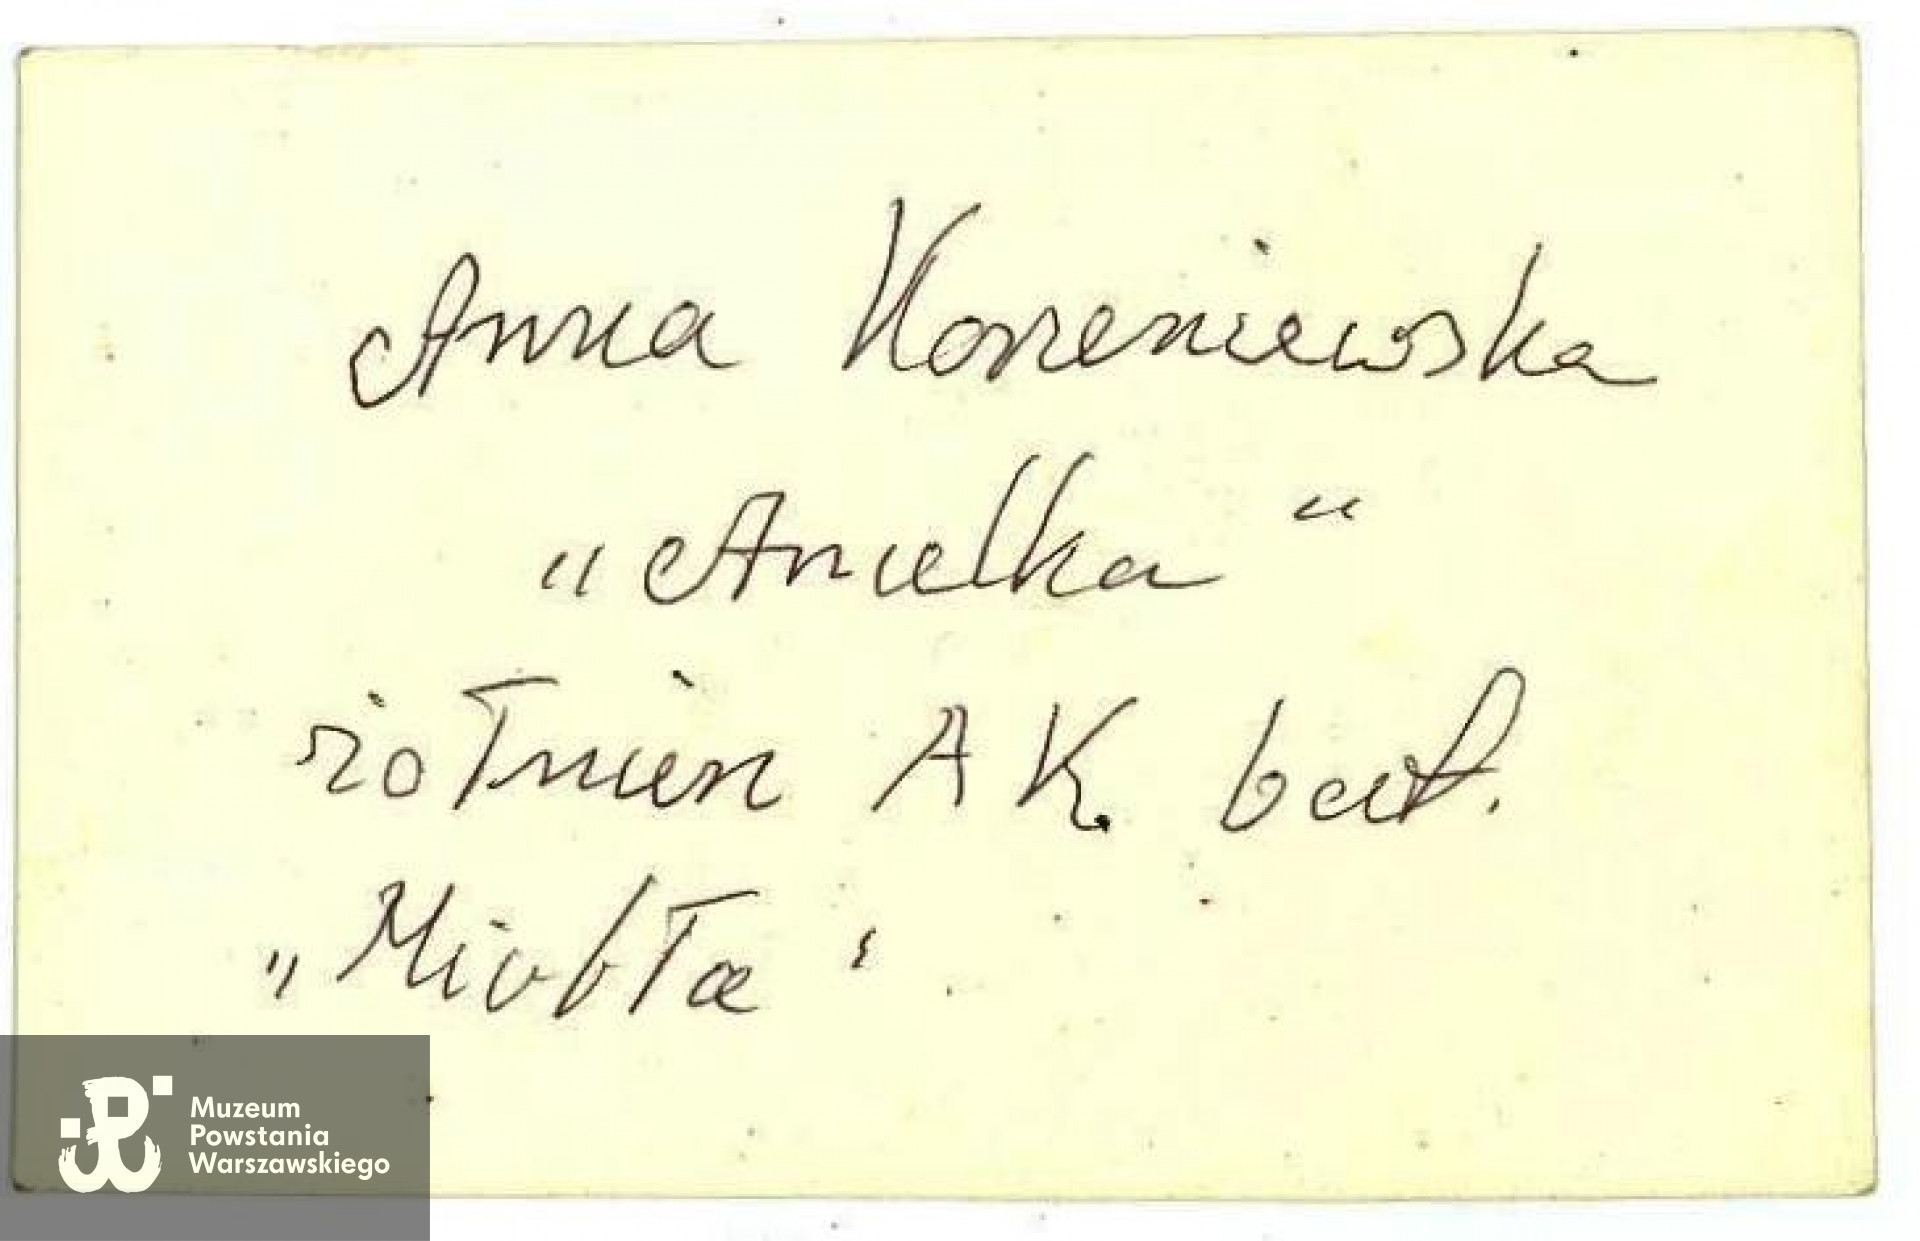 Anna Korzeniewska
„Anielka"
żołnierz AK bat.
„Miotła"
Muzeum
Powstania
Warszawskiego